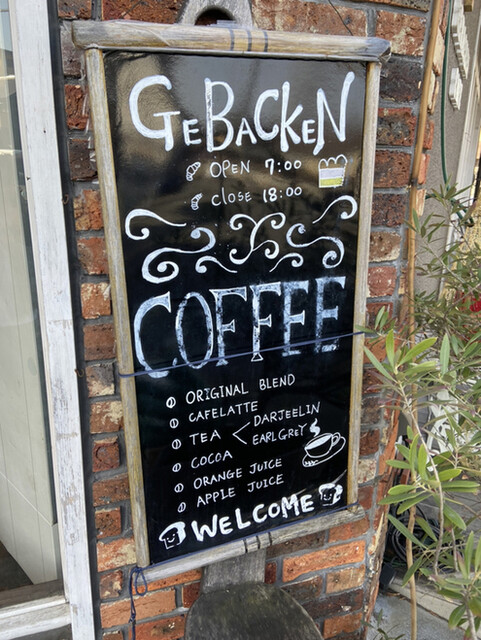 GEBACKEN
OPEN 7:00
CLOSE 18:00
COFFEE
ORIGINAL BLEND
CAFELATTE
TEA < DARJEELIN
EARL GREY
COCOA
ORANGE JUICE
APPLE JUICE
WELCOME